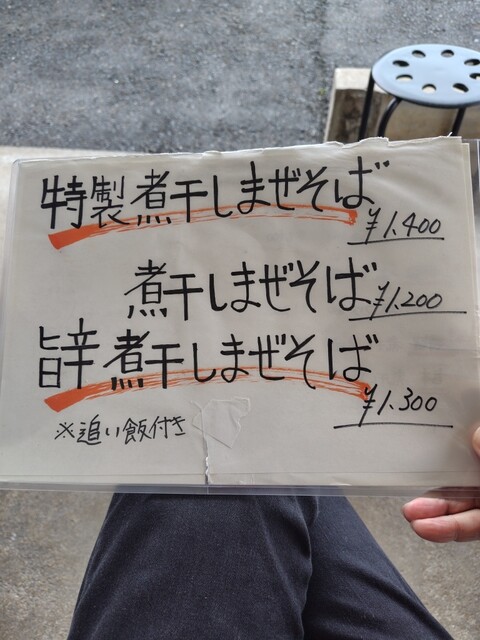 特製煮干しまぜそば
¥1,400
煮干しまぜそば
¥1,200
旨辛煮干しまぜそば
¥1,300
※追い飯付き